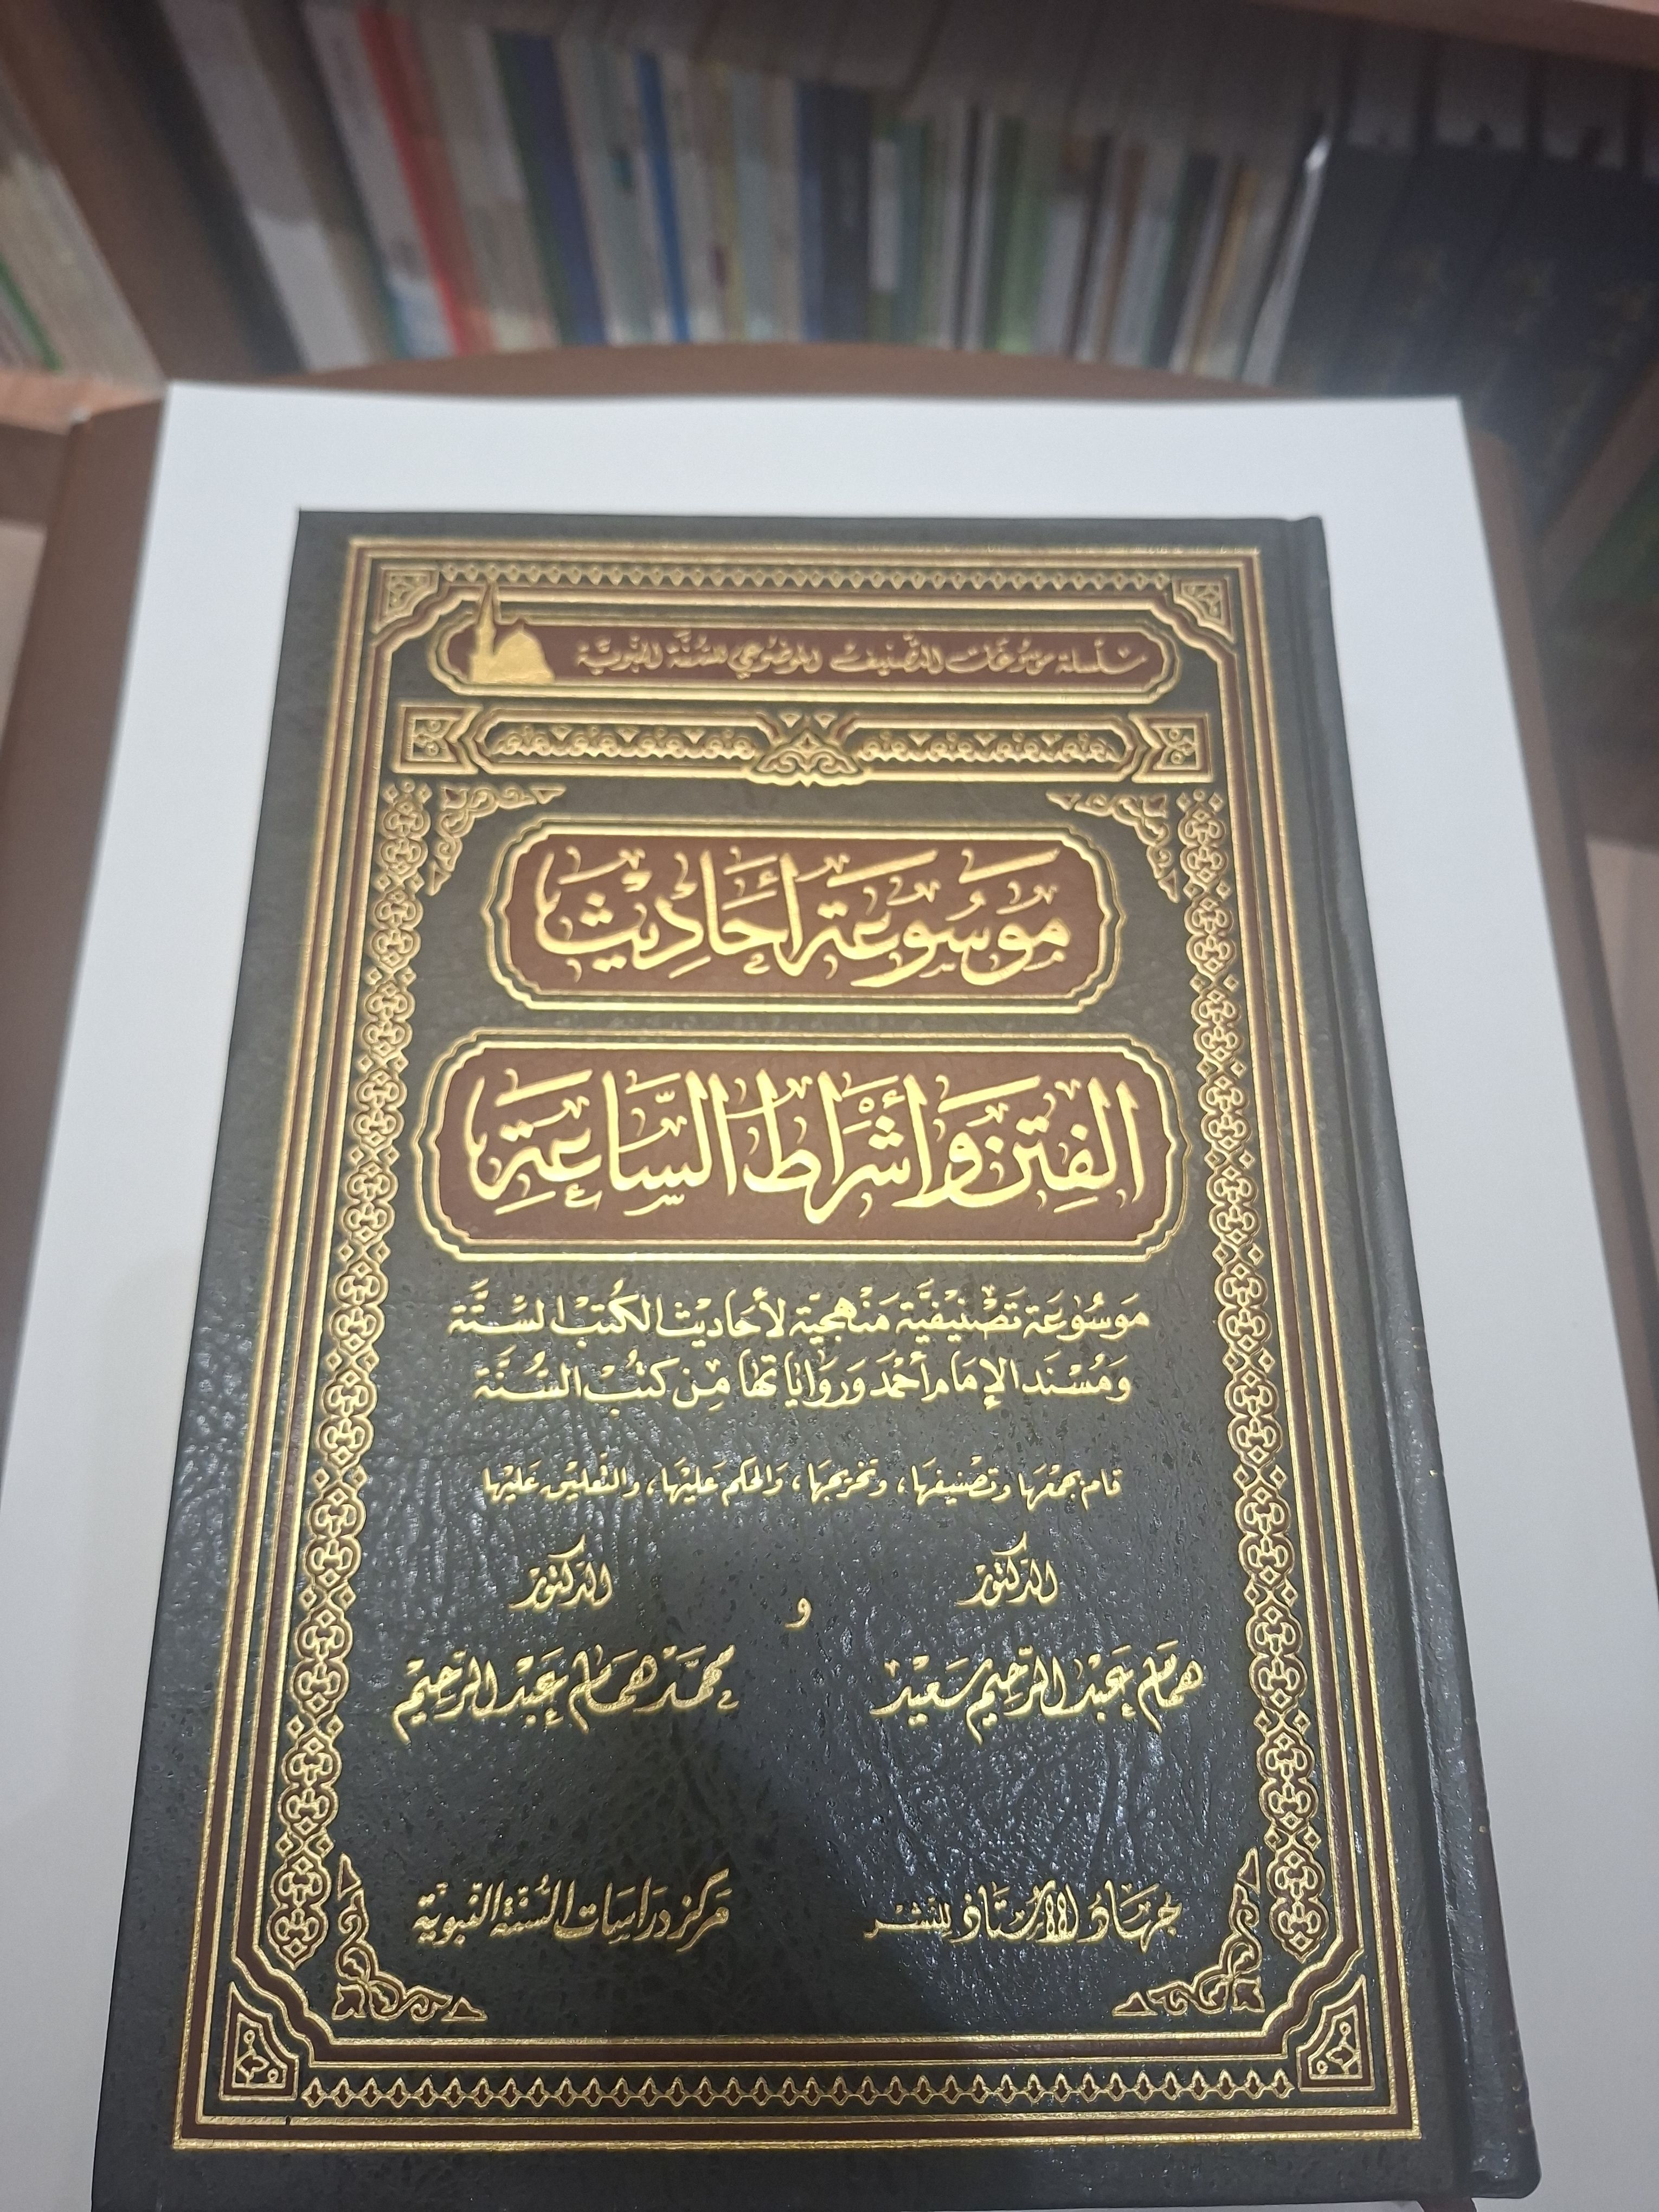 سلسلة موسوعات التصنيف الموضوعي للسنة النبوية
مَوسُوعَة أحَادِيث
الفِتَن وَأشْرَاط السَّاعَةِ
مَوسُوعَة تَصْنِيفيَّة مَنْهجيَّة لأحَاديْث الكُتبْ السِّتَّة
وَمُسْنَد الإمَام أحْمَد وَروَاياتها مِن كتُبْ السُّنَّة
قام بجمْعِهَا وتصْنيفهَا، وتخريجهَا، وَالحكم عَليْهَا، والتّعليْق عَليْهَا
الدّكتوْر و الدّكتوْر
همَام عَبْد الرّحِيْم سَعيْد محمّدْ همَام عَبْد الرّحِيْم
جهَادُ الأسْتَاذ للنّشر مَركز درَاسَات السُّنَّة النّبويّة